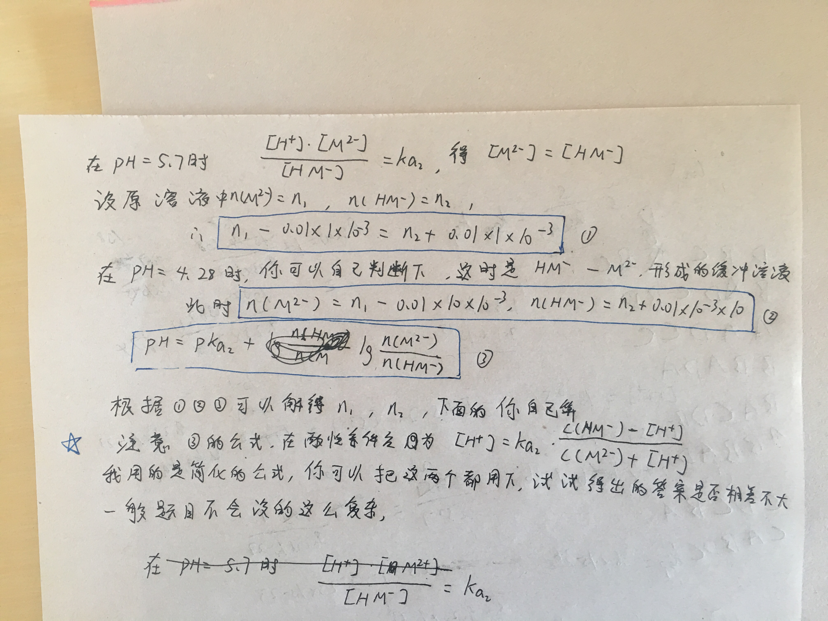 在 pH=5.7时 [H⁺]·[M²⁻]/[HM⁻] = ka₂, 得 [M²⁻]=[HM⁻]
设原溶液中n(M²⁻)=n₁, n(HM⁻)=n₂,
∴ n₁-0.01×1×10⁻³ = n₂+0.01×1×10⁻³ ①
在 pH=4.28时, 你可以自己判断下, 这时是 HM⁻-M²⁻ 形成的缓冲溶液
此时 n(M²⁻)=n₁-0.01×10×10⁻³, n(HM⁻)=n₂+0.01×10⁻³×10 ②
pH = pka₂ + lg n(M²⁻)/n(HM⁻) ③
根据①②③可以解得 n₁, n₂, 下面的你自己算
☆ 注意 ③的公式, 在酸性条件应因为 [H⁺]=ka₂·C(HM⁻)-[H⁺]/C(M²⁻)+[H⁺]
我用的是简化的公式, 你可以把这两个都用下, 试试得出的答案是否相差不大
一般题目不会设的这么复杂,
在 pH=5.7时 [H⁺]·[M²⁺]/[HM⁻] = ka₂